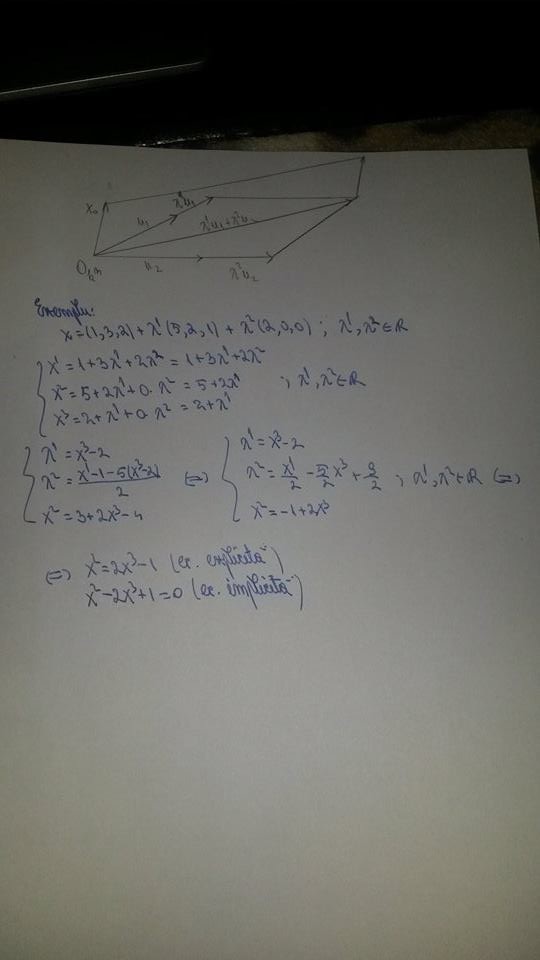 x₀
u₁
λ¹u₁
λ¹u₁+λ²u₂
O
u₂
λ²u₂
Exemplu:
x=(1,3,2)+λ¹(5,2,1)+λ²(2,0,0); λ¹,λ²∈R
x¹=1+3λ¹+2λ²=1+3λ¹+2λ²
x²=5+2λ¹+0·λ²=5+2λ¹ ; λ¹,λ²∈R
x³=2+λ¹+0·λ²=2+λ¹
λ¹=x³-2 λ¹=x³-2
λ²=(x¹-1-5(x³-2))/2 ⇔ λ²=x¹/2-5/2x³+9/2 ; λ¹,λ²∈R ⇔
x²=3+2x³-4 x²=-1+2x³
⇔ x²=2x³-1 (ec. explicită)
x²-2x³+1=0 (ec. implicită)